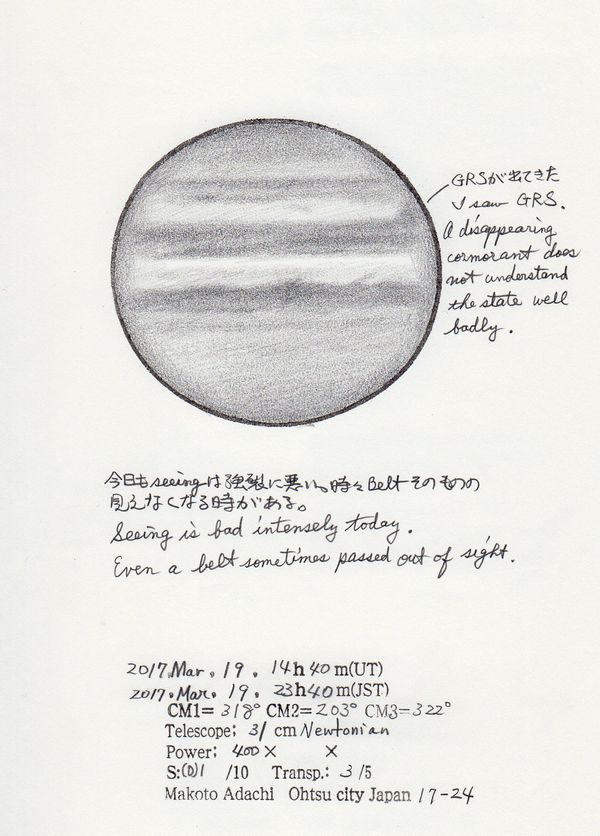 GRSが出てきた
I saw GRS.
A disappearing
cormorant does
not understand
the state well
badly.
今日もseeingは強烈に悪い。時々Beltそのものの
見えなくなる時がある。
Seeing is bad intensely today.
Even a belt sometimes passed out of sight.
2017.Mar. 19. 14h40m(UT)
2017.Mar. 19. 23h40m(JST)
CM1=318° CM2=203° CM3=322°
Telescope; 31 cm Newtonian
Power; 400× ×
S:(0)1 /10 Transp.: 3/5
Makoto Adachi Ohtsu city Japan 17-24